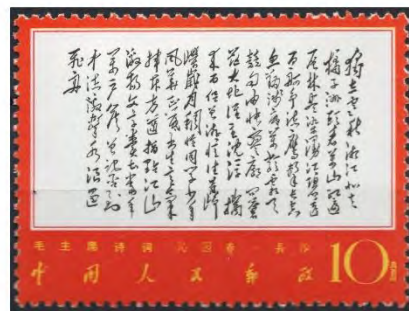 独立寒秋湘江北去
橘子洲头看万山红遍
层林尽染漫江碧透
百舸争流鹰击长空
鱼翔浅底万类霜天
竞自由怅寥廓问苍
茫大地谁主沉浮携
来百侣曾游忆往昔峥
嵘岁月稠恰同学少年
风华正茂书生意气
挥斥方遒指点江山
激扬文字粪土当年
万户侯曾记否到
中流击水浪遏
飞舟
毛主席诗词 沁园春 长沙
中国人民邮政 10